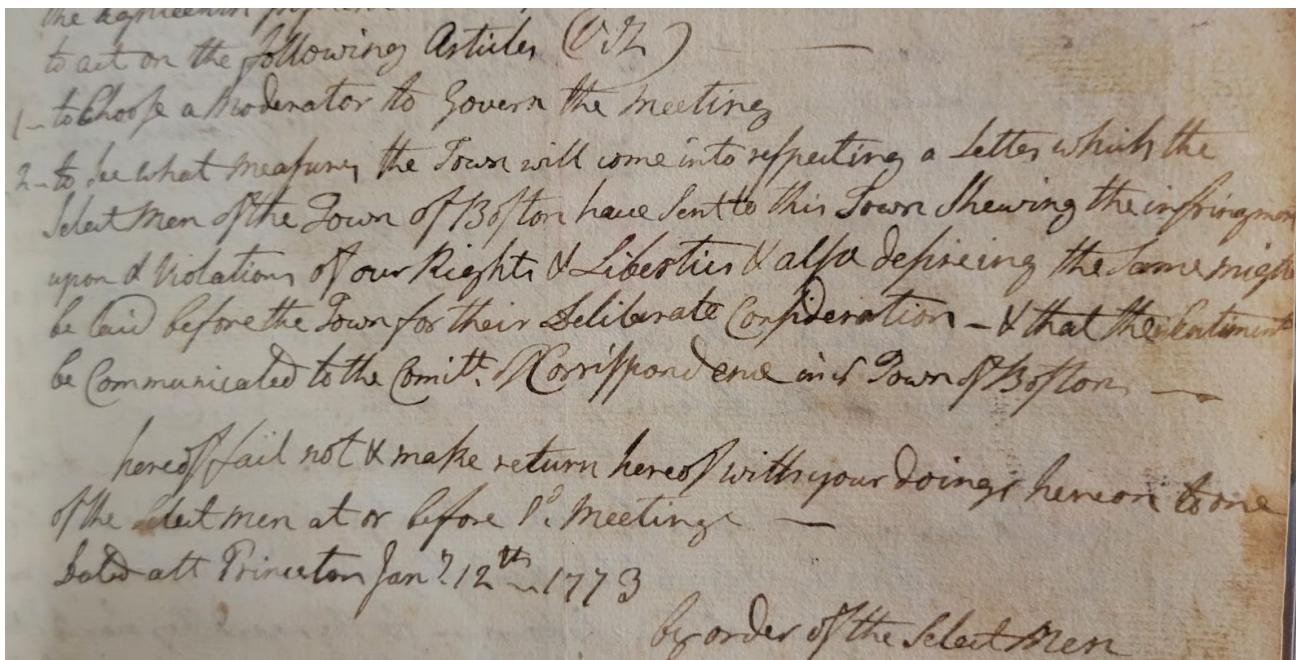 to act on the following Articles (Viz)
1 - to Choose a Moderator to Govern the Meeting
2 - to See what measures the Town will come into respecting a Letter which the
Select Men of the Town of Boston have Sent to this Town Shewing the infringment
upon & Violations of our Rights & Liberties & also desireing the Same might
be laid before the Town for their Deliberate Consideration - & that the Sentiments
be Communicated to the Comitt. of Corrispondence in Town of Boston
hereof fail not & make return hereof with your doings hereon to one
of the Select men at or before Sd. Meeting
Dated att Princeton Jany 12th 1773
by order of the Select Men